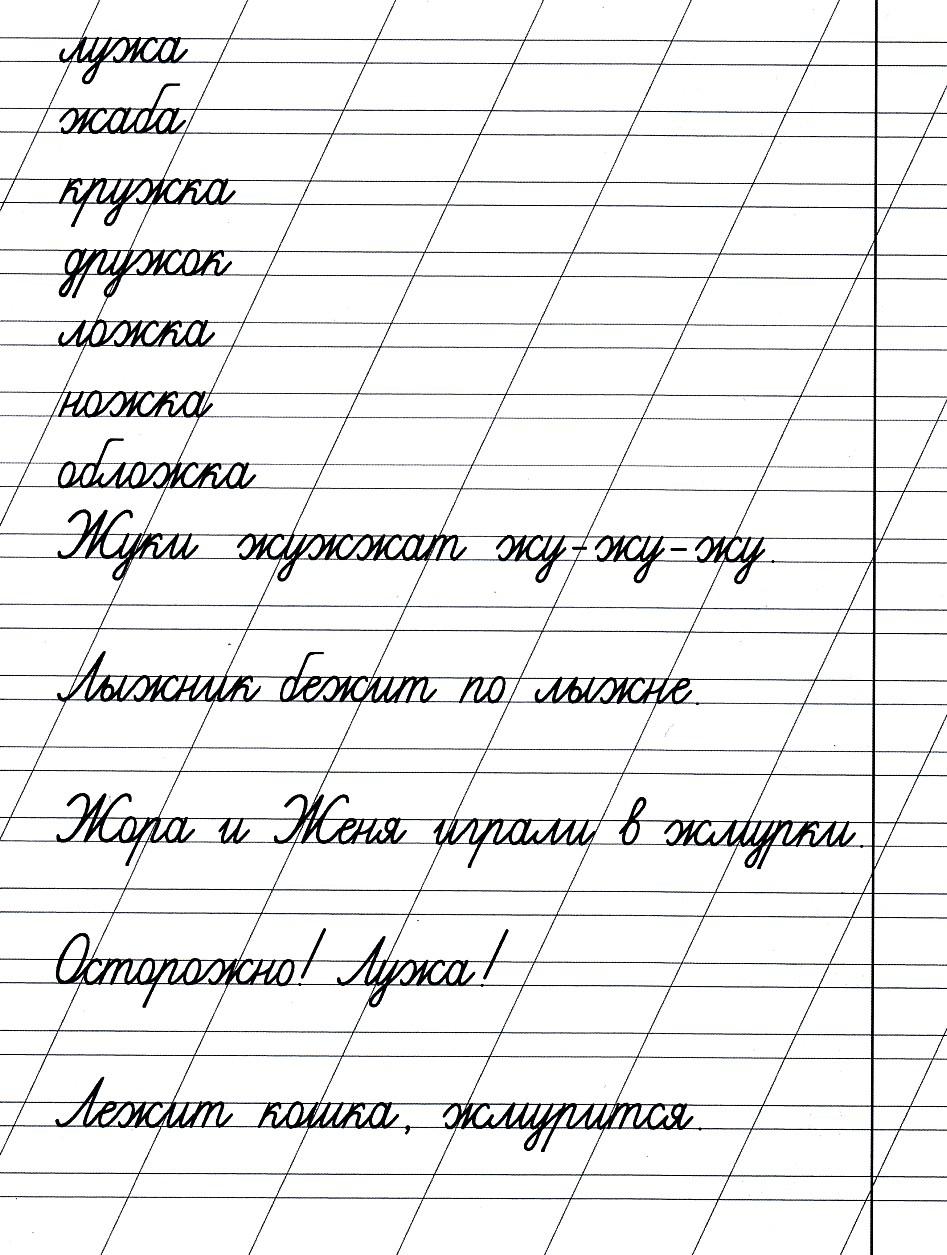 лужа
жаба
кружка
дружок
ложка
ножка
обложка
Жуки жужжат жу-жу-жу.
Лыжник бежит по лыжне.
Жора и Женя играли в жмурки.
Осторожно! Лужа!
Лежит кошка, жмурится.